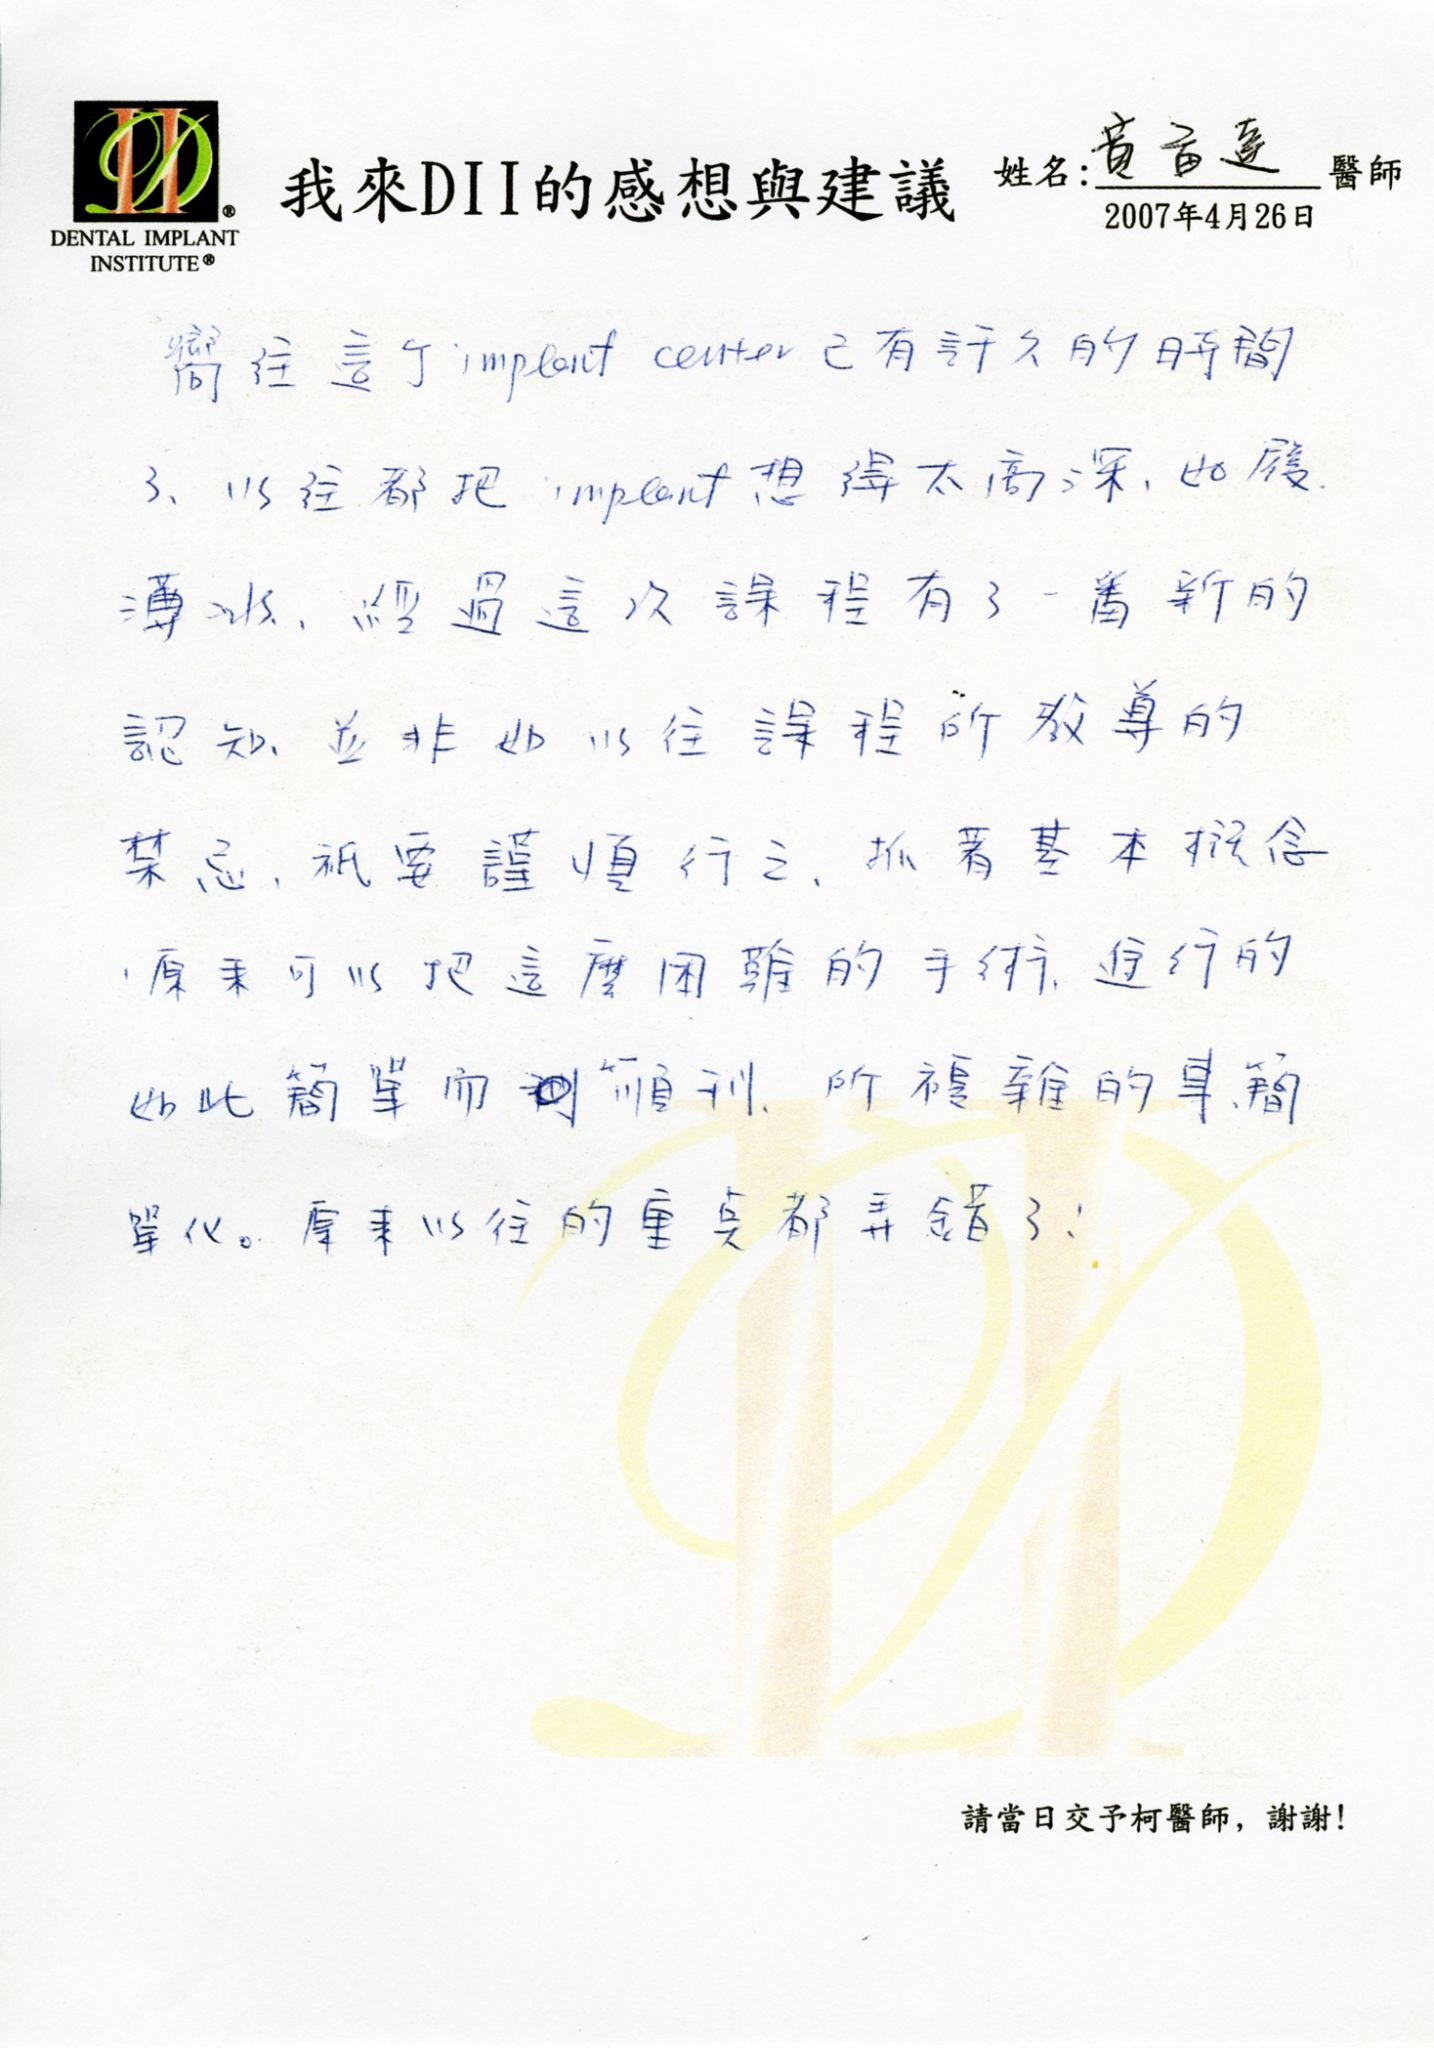 DENTAL IMPLANT
INSTITUTE®
我來DII的感想與建議
姓名: 醫師
2007年4月26日
嚮往這个implant center已有許久的時間
了、以往都把implant想得太高深、如履
薄冰、經過這次課程有了一番新的
認知、並非如以往課程所教導的
禁忌、祇要謹慎行之、抓著基本概念
、原來可以把這麼困難的手術、進行的
如此簡單而順利、所複雜的事簡
單化。原來以往的重點都弄錯了!
請當日交予柯醫師，謝謝!